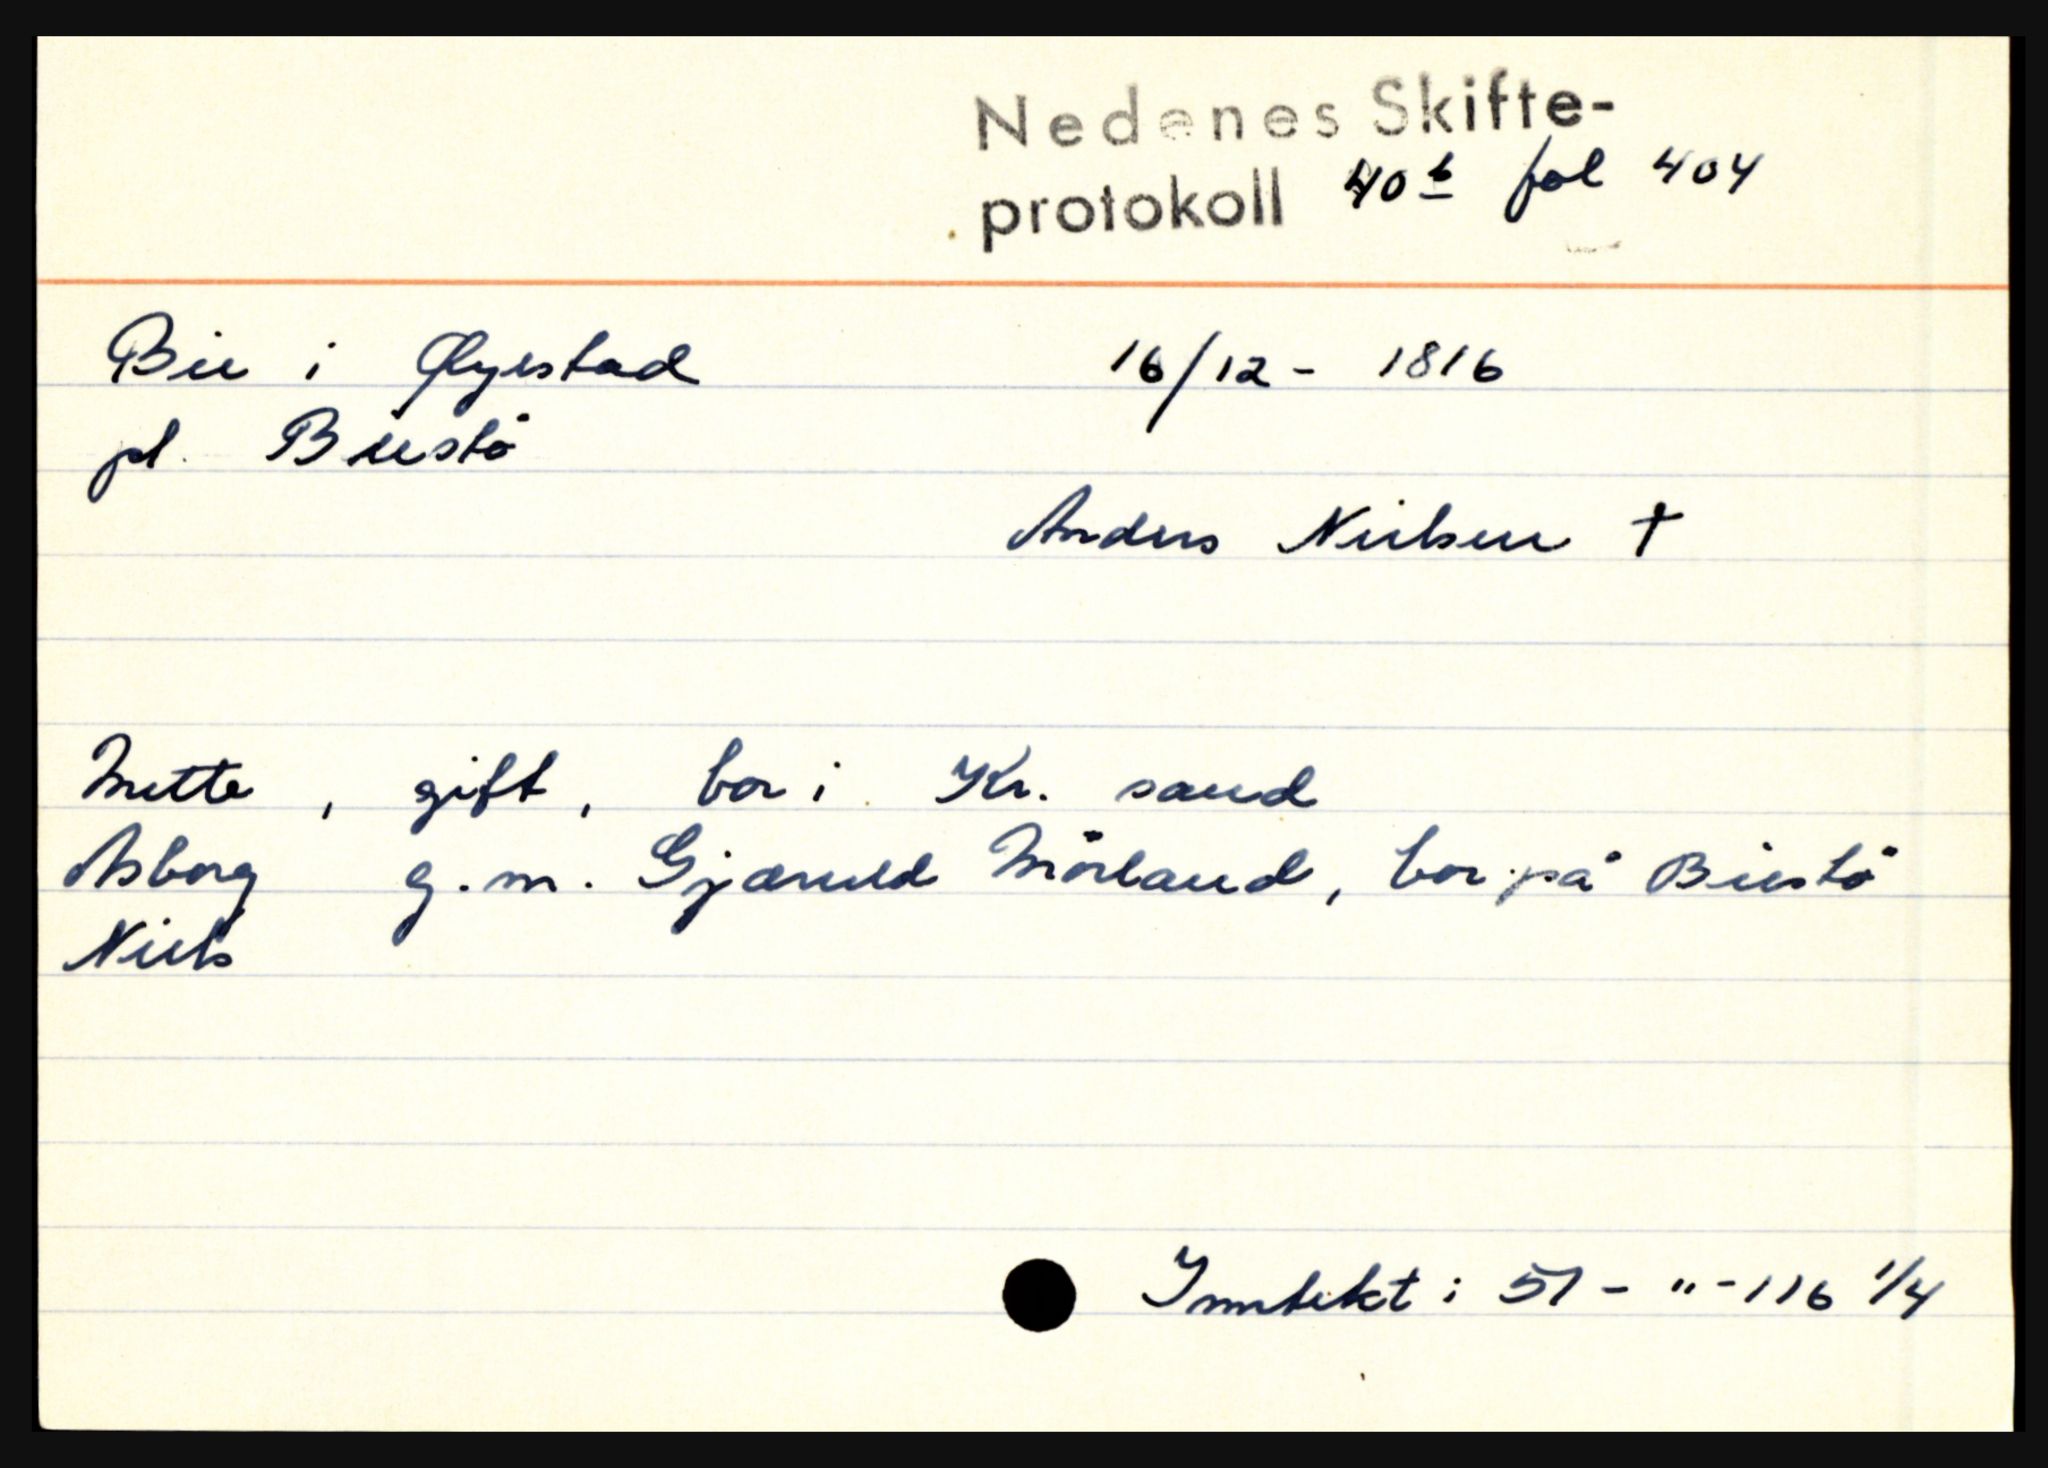 Nedenes Skifte-
protokoll 40b fol 404
Bie i Øyestad 16/12 - 1816
pl. Biestö
Anders Nielsen †
Mette, gift, bor i Kr. sand
Asborg g.m. Gjæruld Mörland, bor på Biestö
Niels
Inntekt i 51 - " - 116 1/4